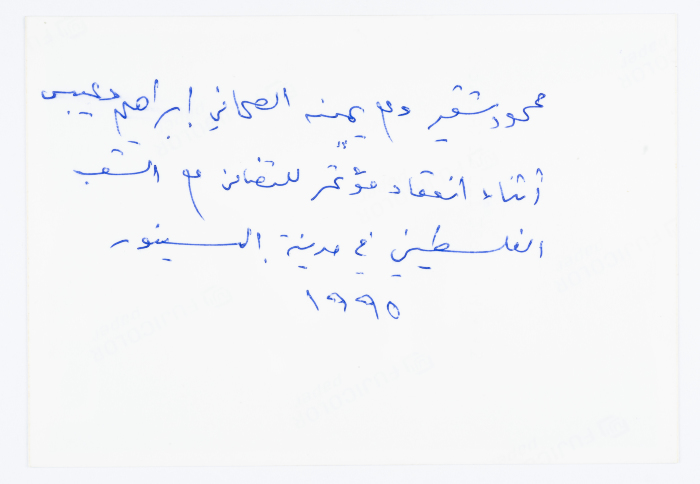 محمود شقير وعن يمينه الصحافي إبراهيم دعيبس
أثناء انعقاد مؤتمر للتضامن مع الشعب
الفلسطيني في مدينة
١٩٩٥